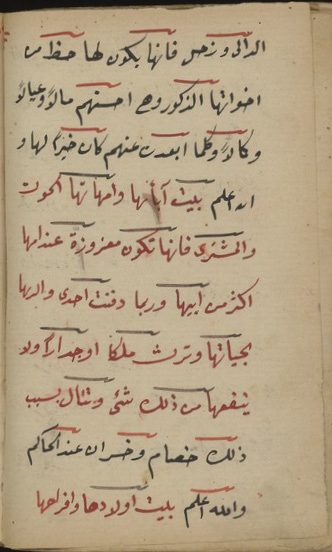 الدالى وزحل فانها يكون لها حظ من
اخواتها الذكور وهى احسنهم مالا وعيالا
وكمالا وكلما ابعدت عنهم كان خيرا لها و
الله اعلم بيت آبائها وامهاتها الحوت
والمشترى فانها تكون معزوزة عند امها
اكثر من ابيها وربما دفنت احدى والديها
بحياتها وترث ملكا او جدارا ولا
ينفعها من ذلك شئ وتنال بسبب
ذلك خصام وخسران عند الحاكم
والله اعلم بيت اولادها وافراحها